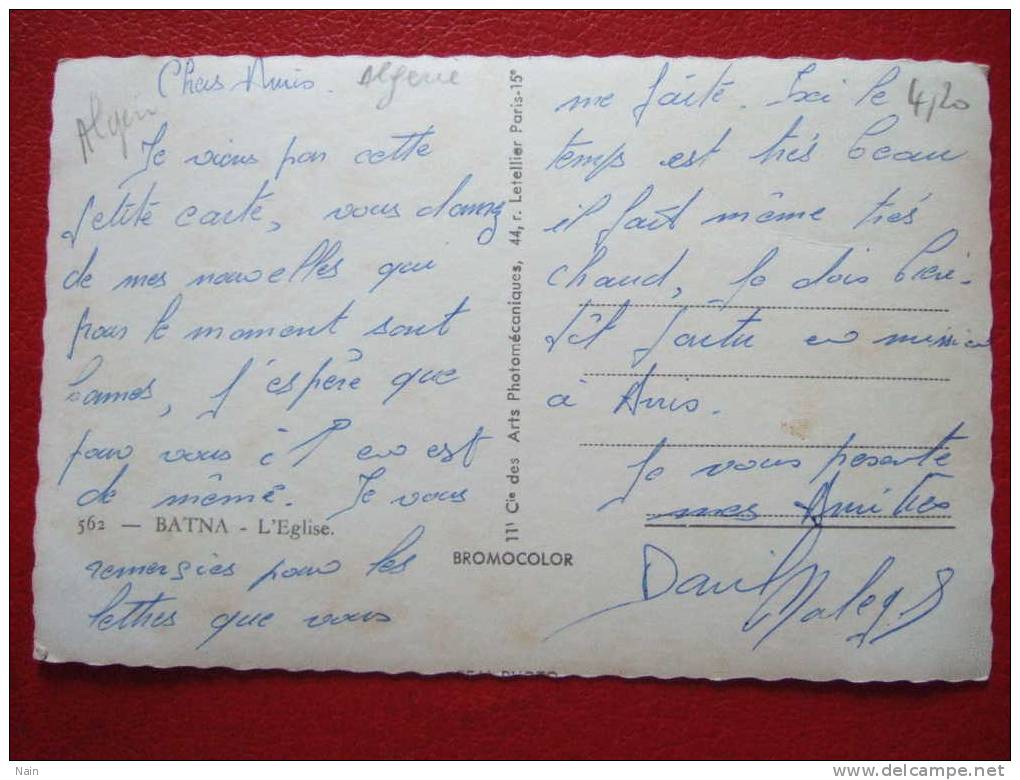 Chers Amis.
Algerie
Algeri
Je viens par cette
petite carte, vous donnez
de mes nouvelles qui
pour le moment sont
bonnes, j'espère que
pour vous il en est
de même. Je vous
562 — BATNA - L'Eglise.
remersies pour les
lettres que vous
11' Cie des Arts Photomécaniques, 44, r. Letellier Paris-15e
BROMOCOLOR
me faite. Ici le
4,20
temps est très beau
il fait même très
chaud, Je dois bien-
tôt partir en mission
à Arris.
Je vous pesente
mes Amitiés
David
Nain
www.delcampe.net